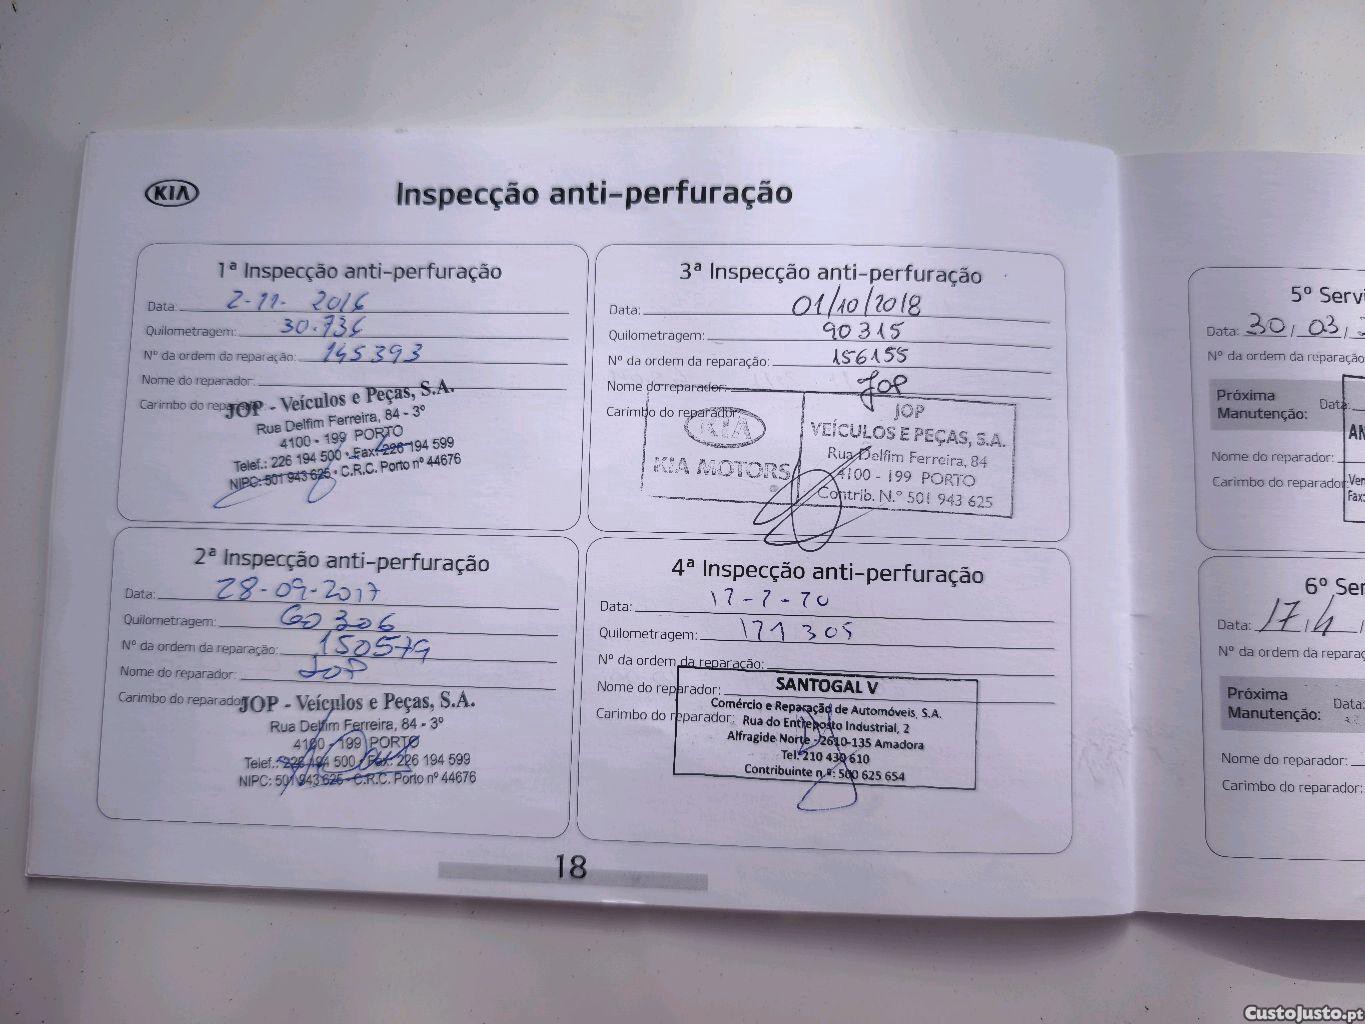 KIA
Inspecção anti-perfuração
1ª Inspecção anti-perfuração
Data: 2-11-2016
Quilometragem: 30.736
Nº da ordem da reparação: 145393
Nome do reparador:
Carimbo do reparador:
JOP - Veículos e Peças, S.A.
Rua Delfim Ferreira, 84 - 3º
4100 - 199 PORTO
Telef.: 226 194 500 • Fax: 226 194 599
NIPC: 501 943 625 • C.R.C. Porto nº 44676
2ª Inspecção anti-perfuração
Data: 28-09-2017
Quilometragem: 60306
Nº da ordem da reparação: 150579
Nome do reparador: JOP
Carimbo do reparador
JOP - Veículos e Peças, S.A.
Rua Delfim Ferreira, 84 - 3º
4100 - 199 PORTO
Telef.: 226 194 500 • Fax: 226 194 599
NIPC: 501 943 625 - C.R.C. Porto nº 44676
3ª Inspecção anti-perfuração
Data: 01/10/2018
Quilometragem: 90315
Nº da ordem da reparação: 156155
Nome do reparador: JOP
Carimbo do reparador:
KIA
KIA MOTORS
JOP
VEÍCULOS E PEÇAS, S.A.
Rua Delfim Ferreira, 84
4100 - 199 PORTO
Contrib. N.º 501 943 625
4ª Inspecção anti-perfuração
Data: 17-7-20
Quilometragem: 171305
Nº da ordem da reparação:
Nome do reparador:
Carimbo do reparador:
SANTOGAL V
Comércio e Reparação de Automóveis, S.A.
Rua do Entreposto Industrial, 2
Alfragide Norte - 2610-135 Amadora
Tel. 210 430 610
Contribuinte n.º: 500 625 654
18
5º Servi
Data: 30, 03,
Nº da ordem da reparação
Próxima
Manutenção:
Data:
Nome do reparador:
Carimbo do reparador
AN
Ver
Fax:
6º Ser
Data: 17,4
Nº da ordem da reparaç
Próxima
Manutenção:
Data:
Nome do reparador:
Carimbo do reparador:
CustoJusto.pt